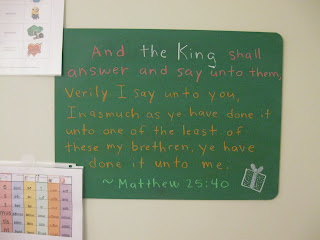 And the King shall
answer and say unto them,
Verily I say unto you,
Inasmuch as ye have done it
unto one of the least of
these my brethren, ye have
done it unto me.
~Matthew 25:40